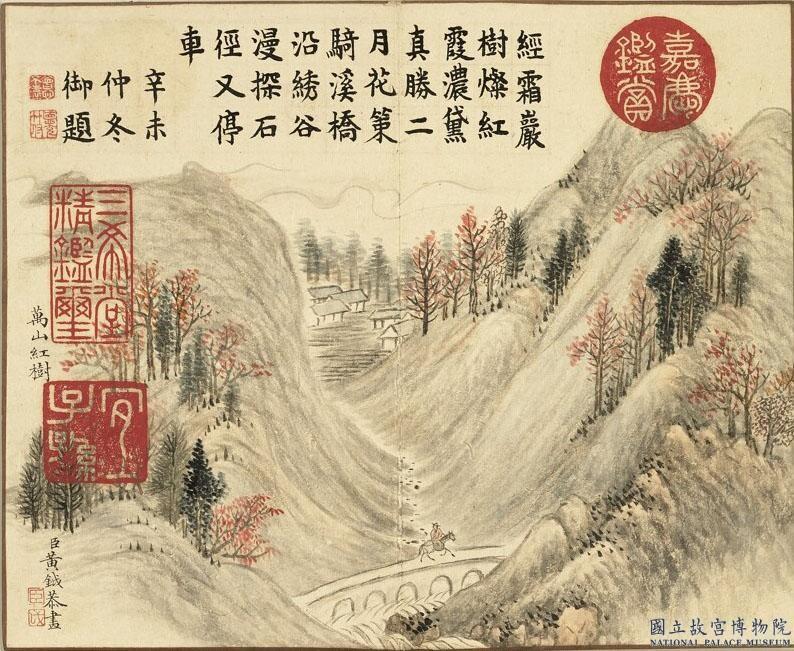 經霜巖
樹燦紅
霞濃黛
真勝二
月花策
騎溪橋
沿綉谷
漫探石
徑又停
車
辛未
仲冬
御題
嘉慶
鑑賞
三希堂
精鑑璽
宜
子孫
萬山紅樹
臣黃鉞恭畫
國立故宮博物院
NATIONAL PALACE MUSEUM